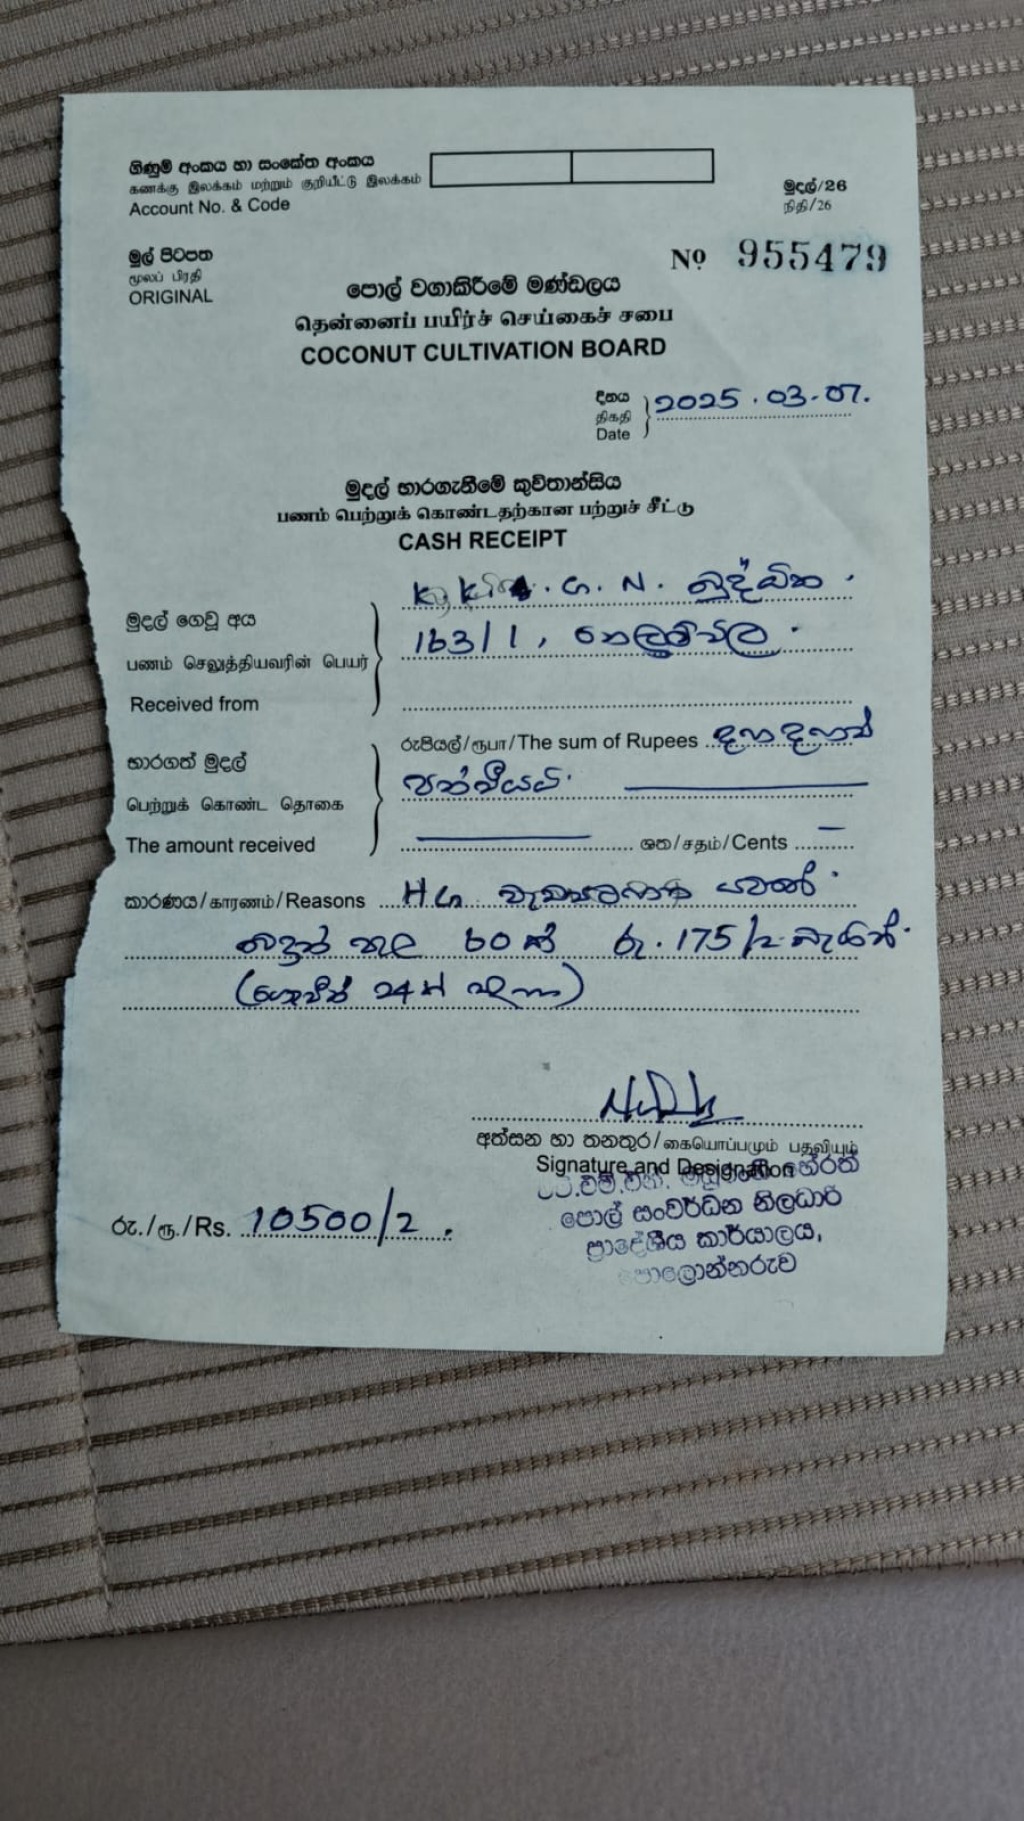 ගිණුම් අංකය හා සංකේත අංකය
கணக்கு இலக்கம் மற்றும் குறியீட்டு இலக்கம்
Account No. & Code
මුදල්/26
நிதி/26
මුල් පිටපත
மூலப் பிரதி
ORIGINAL
Nº 955479
පොල් වගාකිරීමේ මණ්ඩලය
தென்னைப் பயிர்ச் செய்கைச் சபை
COCONUT CULTIVATION BOARD
දිනය
திகதி
Date
2025.03.07.
මුදල් භාරගැනීමේ කුවිතාන්සිය
பணம் பெற்றுக் கொண்டதற்கான பற்றுச் சீட்டு
CASH RECEIPT
මුදල් ගෙවූ අය
பணம் செலுத்தியவரின் பெயர்
Received from
ග. N. බුද්ධික.
163/1,
භාරගත් මුදල්
பெற்றுக் கொண்ட தொகை
The amount received
රුපියල්/ரூபா/The sum of Rupees දහදහස්
පන්සීයයි.
ශත/சதம்/Cents —
කාරණය/காரணம்/Reasons HG වැඩසටහන යටතේ
තුල 60ක් රු. 175/2 බැගින්.
24ක්
අත්සන හා තනතුර/கையொப்பமும் பதவியும்
Signature and Designation
හේරත්
පොල් සංවර්ධන නිලධාරි
ප්‍රාදේශීය කාර්යාලය,
පොලොන්නරුව
රු./ரூ./Rs. 10500/2.